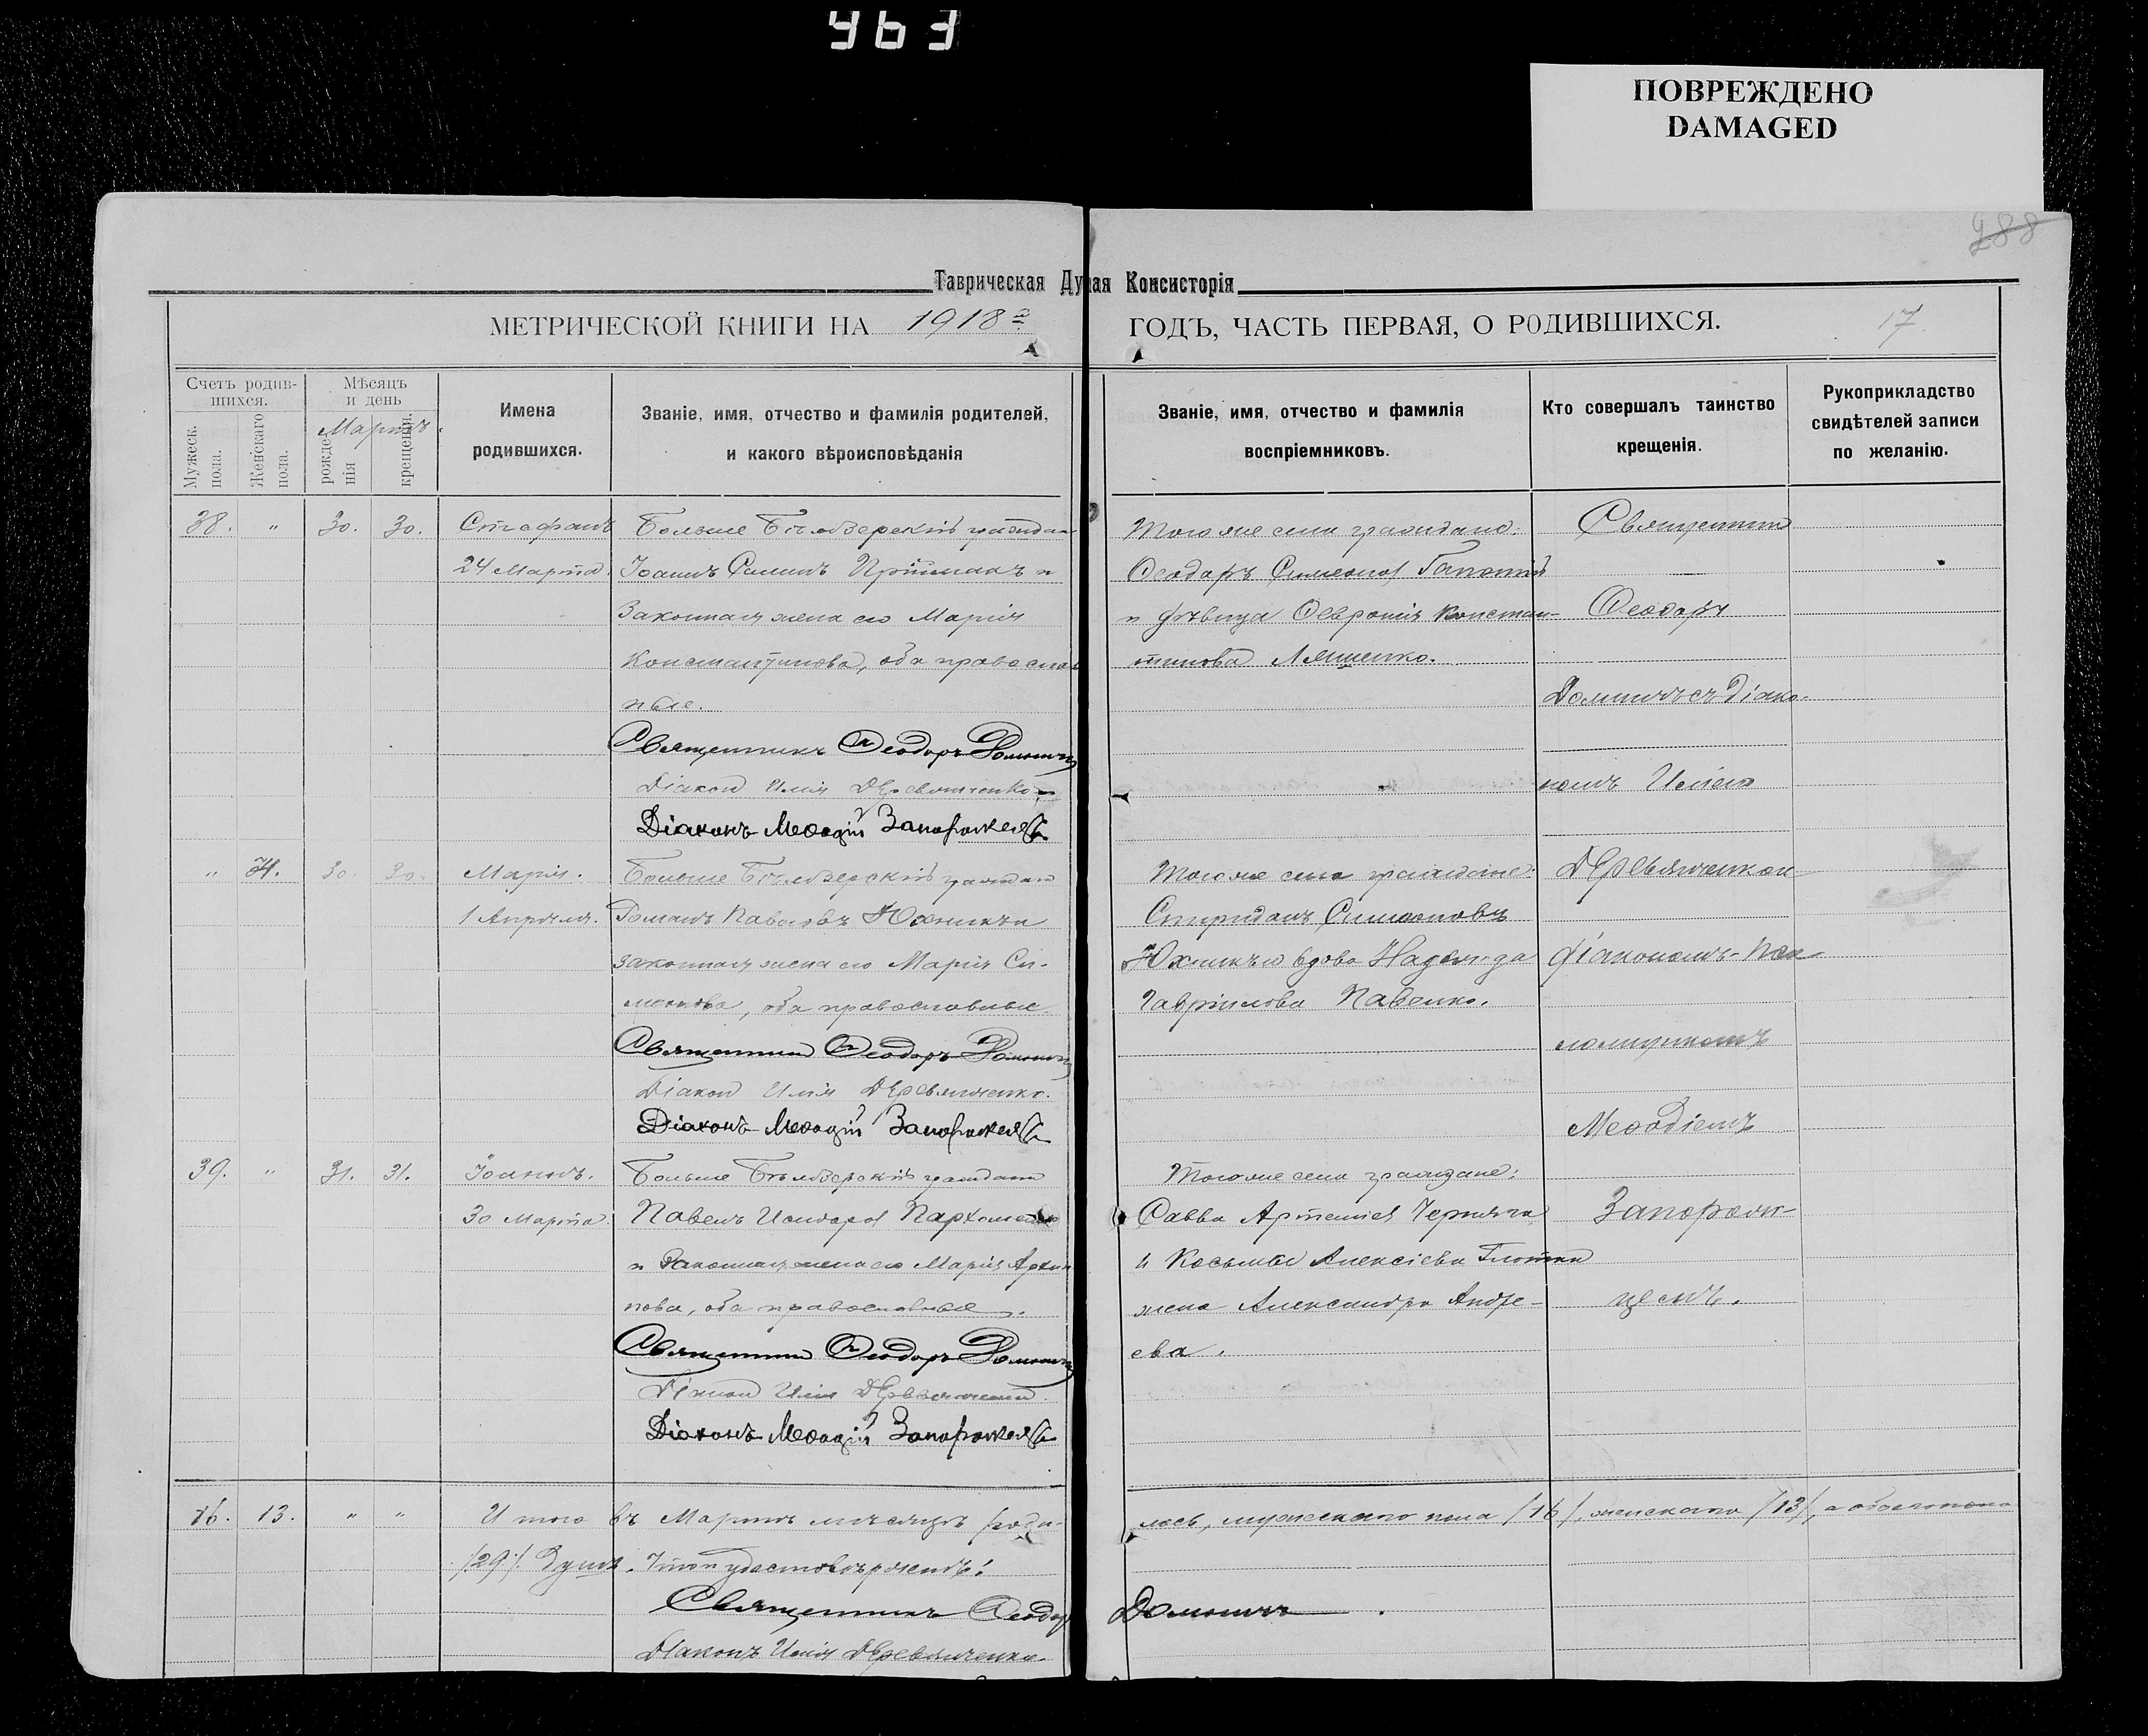 963
ПОВРЕЖДЕНО
DAMAGED
288
Таврическая Духная Консисторія
МЕТРИЧЕСКОЙ КНИГИ НА 1918 ГОДЪ, ЧАСТЬ ПЕРВАЯ, О РОДИВШИХСЯ.
17.
Счетъ родив-
шихся.
Мужеск. пола.
Женскаго пола.
Мѣсяцъ
и день
Мартъ.
рожде-
нія
крещенія.
Имена
родившихся.
Званіе, имя, отчество и фамилія родителей,
и какого вѣроисповѣданія
Званіе, имя, отчество и фамилія
воспріемниковъ.
Кто совершалъ таинство
крещенія.
Рукоприкладство
свидѣтелей записи
по желанію.
38. " 30. 30. Стефанъ
24 Марта.
Больше Бѣлозерскій граждан
Іоаннъ Прійманъ и
Законная жена его Марія
Константинова, оба православ
ные.
Священникъ Ѳеодоръ Домничъ
Діакон Илія Деревянченко
Діаконъ Меѳодій Запорожецъ
Того же села граждане:
Ѳеодоръ Симеонов
и дѣвица Ѳевронія Констан-
тинова Ляшенко.
Священник
Ѳеодоръ
Домничъ съ Діако-
номъ Иліею
Деревянченкои
діакономъ-пса
ломщикомъ
Меѳодіемъ
Запорож-
цемъ.
" 30. 30. Марія.
1 Апрѣля.
Больше Бѣлозерскій граждан
Романъ Павловъ Юхникъ и
законная жена его Марія Си-
меонова, оба православные
Священник Ѳеодоръ Домничъ
Діакон Илія Деревянченко.
Діаконъ Меѳодій Запорожецъ
Того же села граждане:
Спиридонъ Симеоновъ
Юхникъ и вдова Надежда
Гаврилова Павенко.
39. " 31. 31. Іоаннъ.
30 Марта.
Больше Бѣлозерскій граждан
Павелъ Исидоров Пархоменко
и Законная жена его Марія Архип
пова, оба православные.
Священник Ѳеодоръ Домничъ
Діакон Илія Деревянченко
Діаконъ Меѳодій Запорожецъ
Того же села граждане:
Савва Артемиев Черняга
и Косьмы Алексіева
жена Александра Андре-
ева.
16. 13. " " Итого въ Мартѣ мѣсяцѣ роди-
лось, мужескаго пола /16/, женскаго /13/, а обоего пола
/29/. Душъ. Что и удостовѣряемъ:
Священникъ Ѳеодоръ Домничъ
Діаконъ Илія Деревянченко.